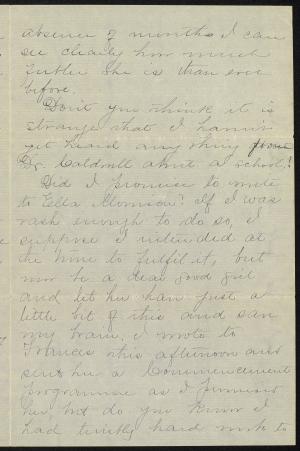 absence of months I can
see clearly how much
further she is than ever
before.
Don't you think it is
strange that I haven't
yet heard anything from
Dr. Caldwell about a school?
Did I promise to write
to Ella Morrison? If I was
rash enough to do so, I
suppose I intended at
the time to fulfil it, but
now be a dear good girl
and let her have just a
little bit of this and save
my brain. I wrote to
Frances this afternoon and
sent her a Commencement
programme as I promised
her, but do you know I
had terribly hard work to